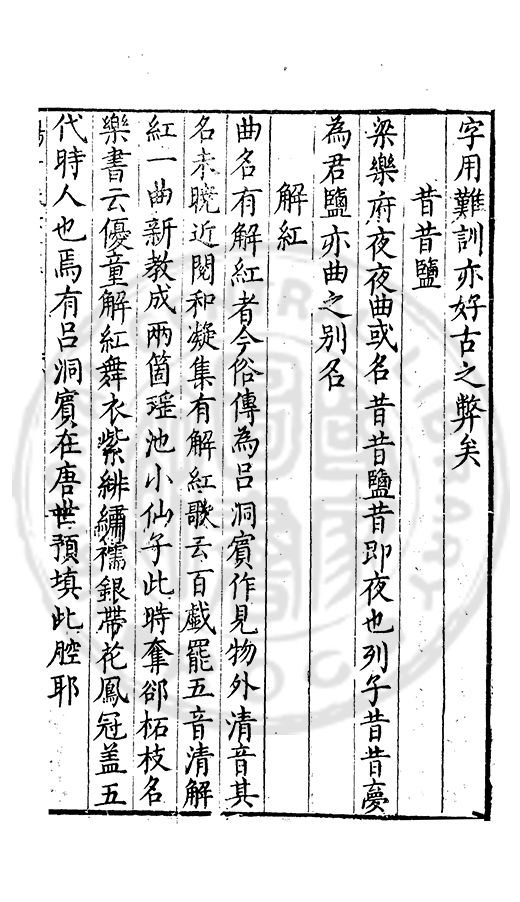 字用難訓亦好古之弊矣
昔昔鹽
梁樂府夜夜曲或名昔昔鹽昔即夜也列子昔昔夣
為君鹽亦曲之别名
解紅
曲名有解紅者今俗傳為吕洞賓作見物外清音其
名未曉近閱和凝集有解紅歌云百戲罷五音清解
紅一曲新教成兩箇瑶池小仙子此時奪郤柘枝名
樂書云優童解紅舞衣紫緋繡襦銀帶花鳳冠盖五
代時人也焉有吕洞賓在唐世預填此腔耶